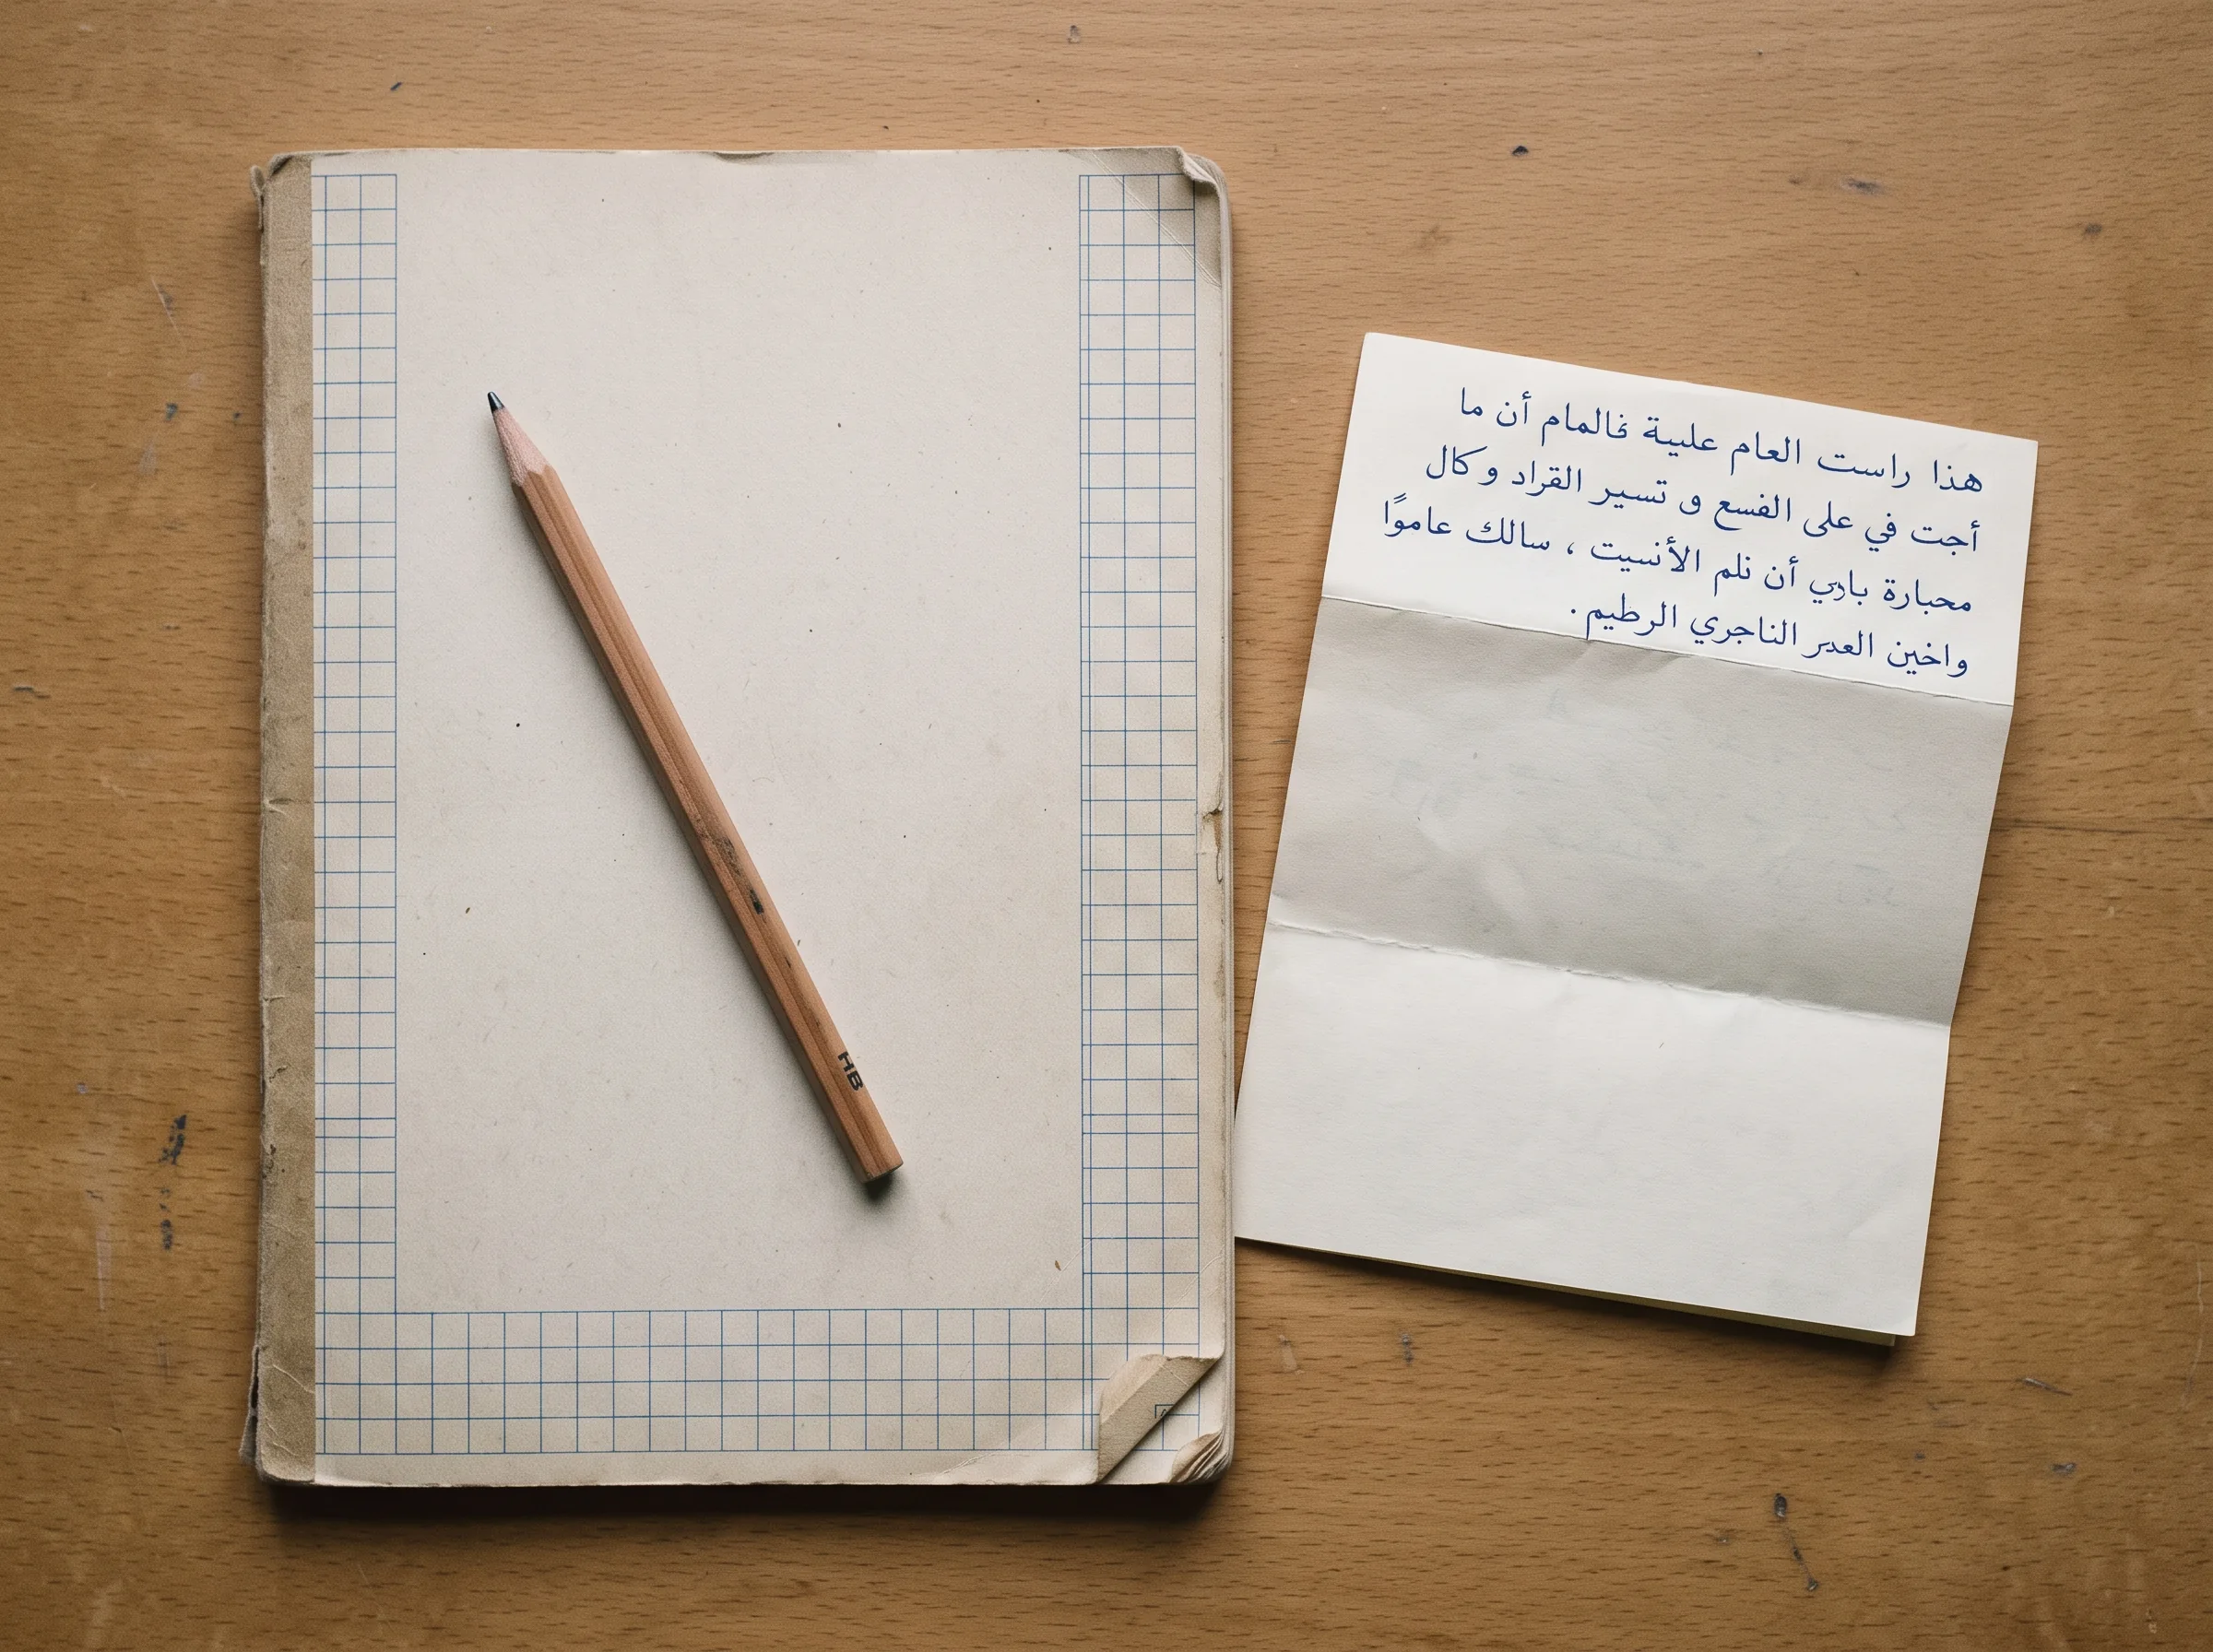 هذا راست العام عليية غالمام أن ما
أجت في على الفسع و تسير القراد و كال
محبارة بادي أن نلم الأنسيت ، سالك عاموًا
واخين العدر الناجري الرطيم .
HB